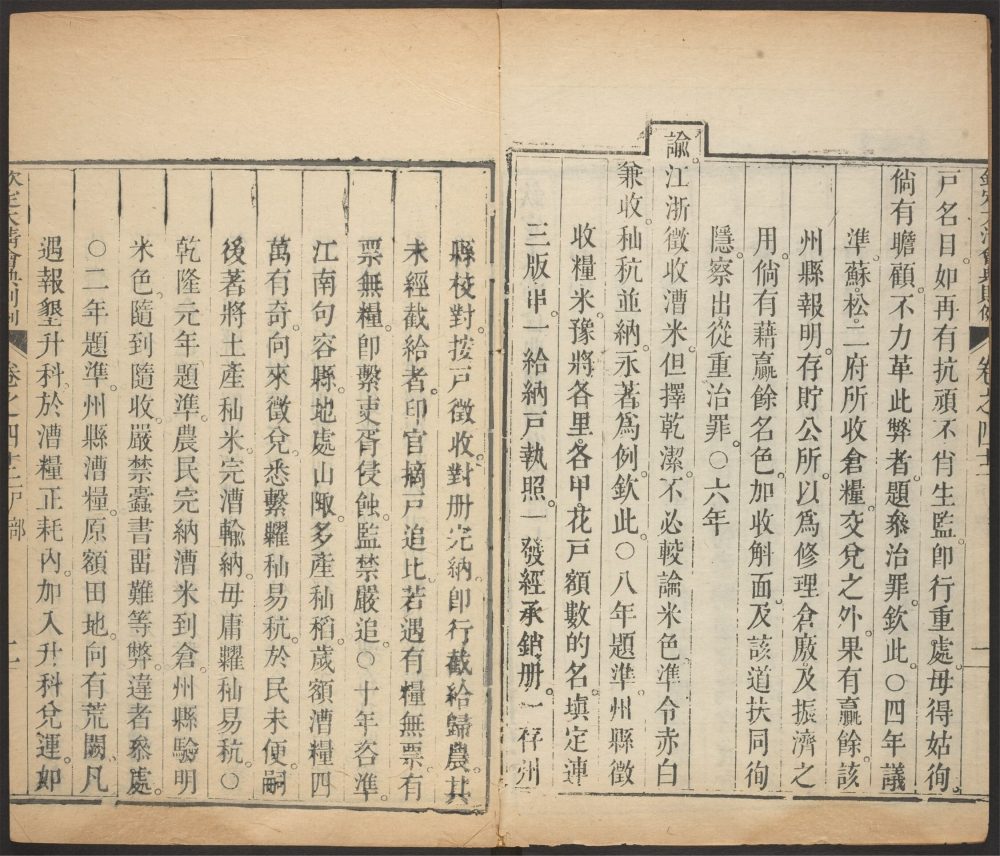 戶名目。如再有抗頑不肖生監。卽行重處。毋得姑徇。
倘有瞻顧。不力革此弊者。題叅治罪。欽此。〇四年議
準。蘇松二府所收倉糧。交兌之外。果有贏餘。該
州縣報明。存貯公所。以爲修理倉廒。及振濟之
用。倘有藉贏餘名色。加收斛面。及該道扶同徇
隱。察出從重治罪。〇六年
諭。江浙徵收漕米。但擇乾潔。不必較論米色。準令赤白
兼收。秈秔並納。永著爲例。欽此。〇八年題準。州縣徵
收糧米。豫將各里各甲花戶額數的名。塡定連
三版串。一給納戶執照。一發經承銷册。一存州
縣校對。按戶徵收。對册完納。卽行截給歸農。其
未經截給者。印官摘戶追比。若遇有糧無票。有
票無糧。卽繫吏胥侵蝕。監禁嚴追。〇十年咨準。
江南句容縣。地處山陬。多產秈稻。歲額漕糧四
萬有奇。向來徵兌。悉繫糶秈易秔。於民未便。嗣
後著將土產秈米。完漕輸納。毋庸糶秈易秔。〇
乾隆元年題準。農民完納漕米到倉。州縣驗明
米色。隨到隨收。嚴禁蠹書畱難等弊。違者叅處。
〇二年題準。州縣漕糧。原額田地。向有荒闕。凡
遇報墾升科。於漕糧正耗內。加入升科兌運。如